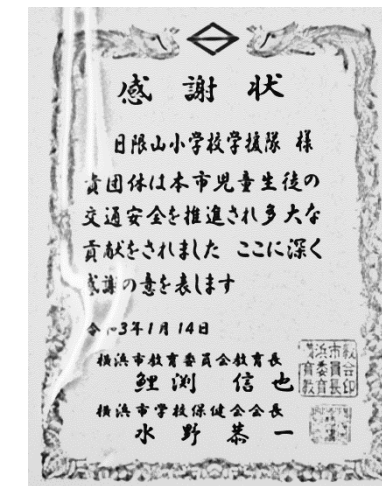 感謝状
日限山小学校学援隊 様
貴団体は本市児童生徒の
交通安全を推進され多大な
貢献をされました ここに深く
感謝の意を表します
令和3年1月14日
横浜市教育委員会教育長
鯉渕 信也
横浜市学校保健会会長
水野 恭一